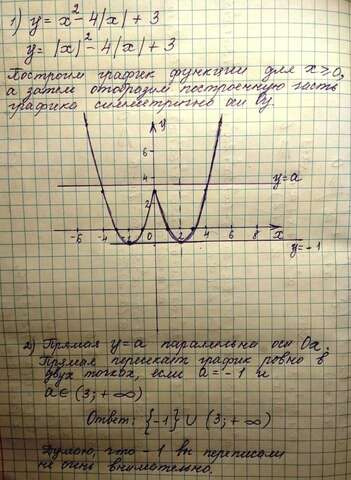 1) y = x² - 4|x| + 3
y = |x|² - 4|x| + 3
Построим график функции для x ⩾ 0,
а затем отобразим построенную часть
графика симметрично оси Oy.
y
6
4
y = a
2
-6 -4 -2 0 2 4 6 8 x
y = -1
2) Прямая y = a параллельна оси Ox.
Прямая пересекает график ровно в
двух точках, если a = -1 и
a ∈ (3; +∞)
Ответ: {-1} ∪ (3; +∞)
Думаю, что -1 вы переписали
не очень внимательно.